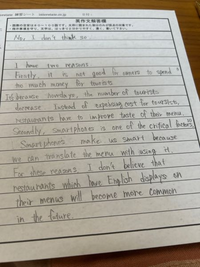 英作文解答欄
No, I don't think so.
I have two reasons.
Firstly, it is not good to spend
too much money for tourists.
Is because nowadays, the number of tourists
decrease. Instead of expensing cost for tourists,
restaurants have to improve taste of this menu.
Secondly, smartphones is one of the critical factors.
Smartphones make us smart because
we can translate the menu with using it.
For these reasons, I don't believe that
restaurants which have English displays on
their menus will become more common
in the future.